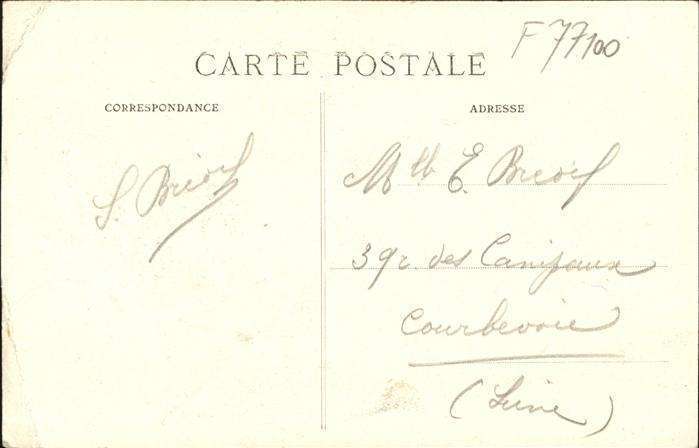 F 77100
CARTE POSTALE
CORRESPONDANCE
ADRESSE
Mlle E. Brioif
39 r. des
Courbevoie
(Seine)